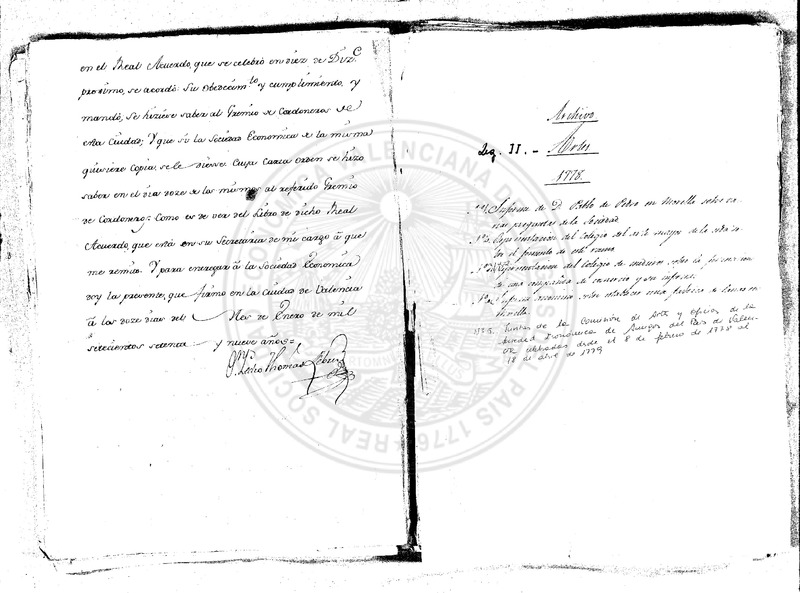 en el Real Acuerdo, que se celebró en diez de Diz.e
proximo, se acordó: Su obedecim.to y cumplimiento, y
mandó, se hiziese saber al Gremio de Cordoneros de
esta Ciudad; Y que si la Sociedad Economica de la misma
quisiere copia, se le diesse. Cuya Carta orden se hizo
saber en el dia doze de los mismos al referido Gremio
de Cordoneros: Como es de ver del Libro de dicho Real
Acuerdo, que está en su Secretaria de mi cargo á que
me remito. Y para entregar á la Sociedad Economica
doy la presente, que firmo en la Ciudad de Valencia
á los doze dias del Mes de Enero de mil
setecientos setenta y nueve años=
Pedro Thomás
Archivo
Leg. II. - Artes
1778.
Informe de D. Pablo de Pedro en Morella sobre va-
rias preguntas de la Sociedad
Representacion del Colegio del arte mayor de la seda so-
bre el fomento de este ramo
Representacion del Colegio de
de una compañia de comercio y su informe.
Informe sobre establecer una fabrica de
Morella.
Nº 5. Juntas de la Comisión de Arte y oficios de la
Sociedad Económica de Amigos del País de Valen-
cia celebradas desde el 8 de febrero de 1778 al
18 de abril de 1779
REAL SOCIEDAD ECONOMICA VALENCIANA PAIS 1776